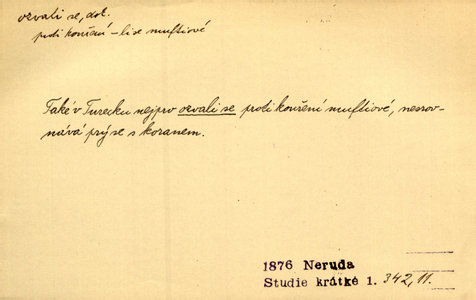 ozvali se, dok.
proti kouření – li se muftiové
Také v Turecku nejprv ozvali se proti kouření muftiové, nesrov-
nává prý se s koranem.
1876 Neruda
Studie krátké 1. 342, 11.